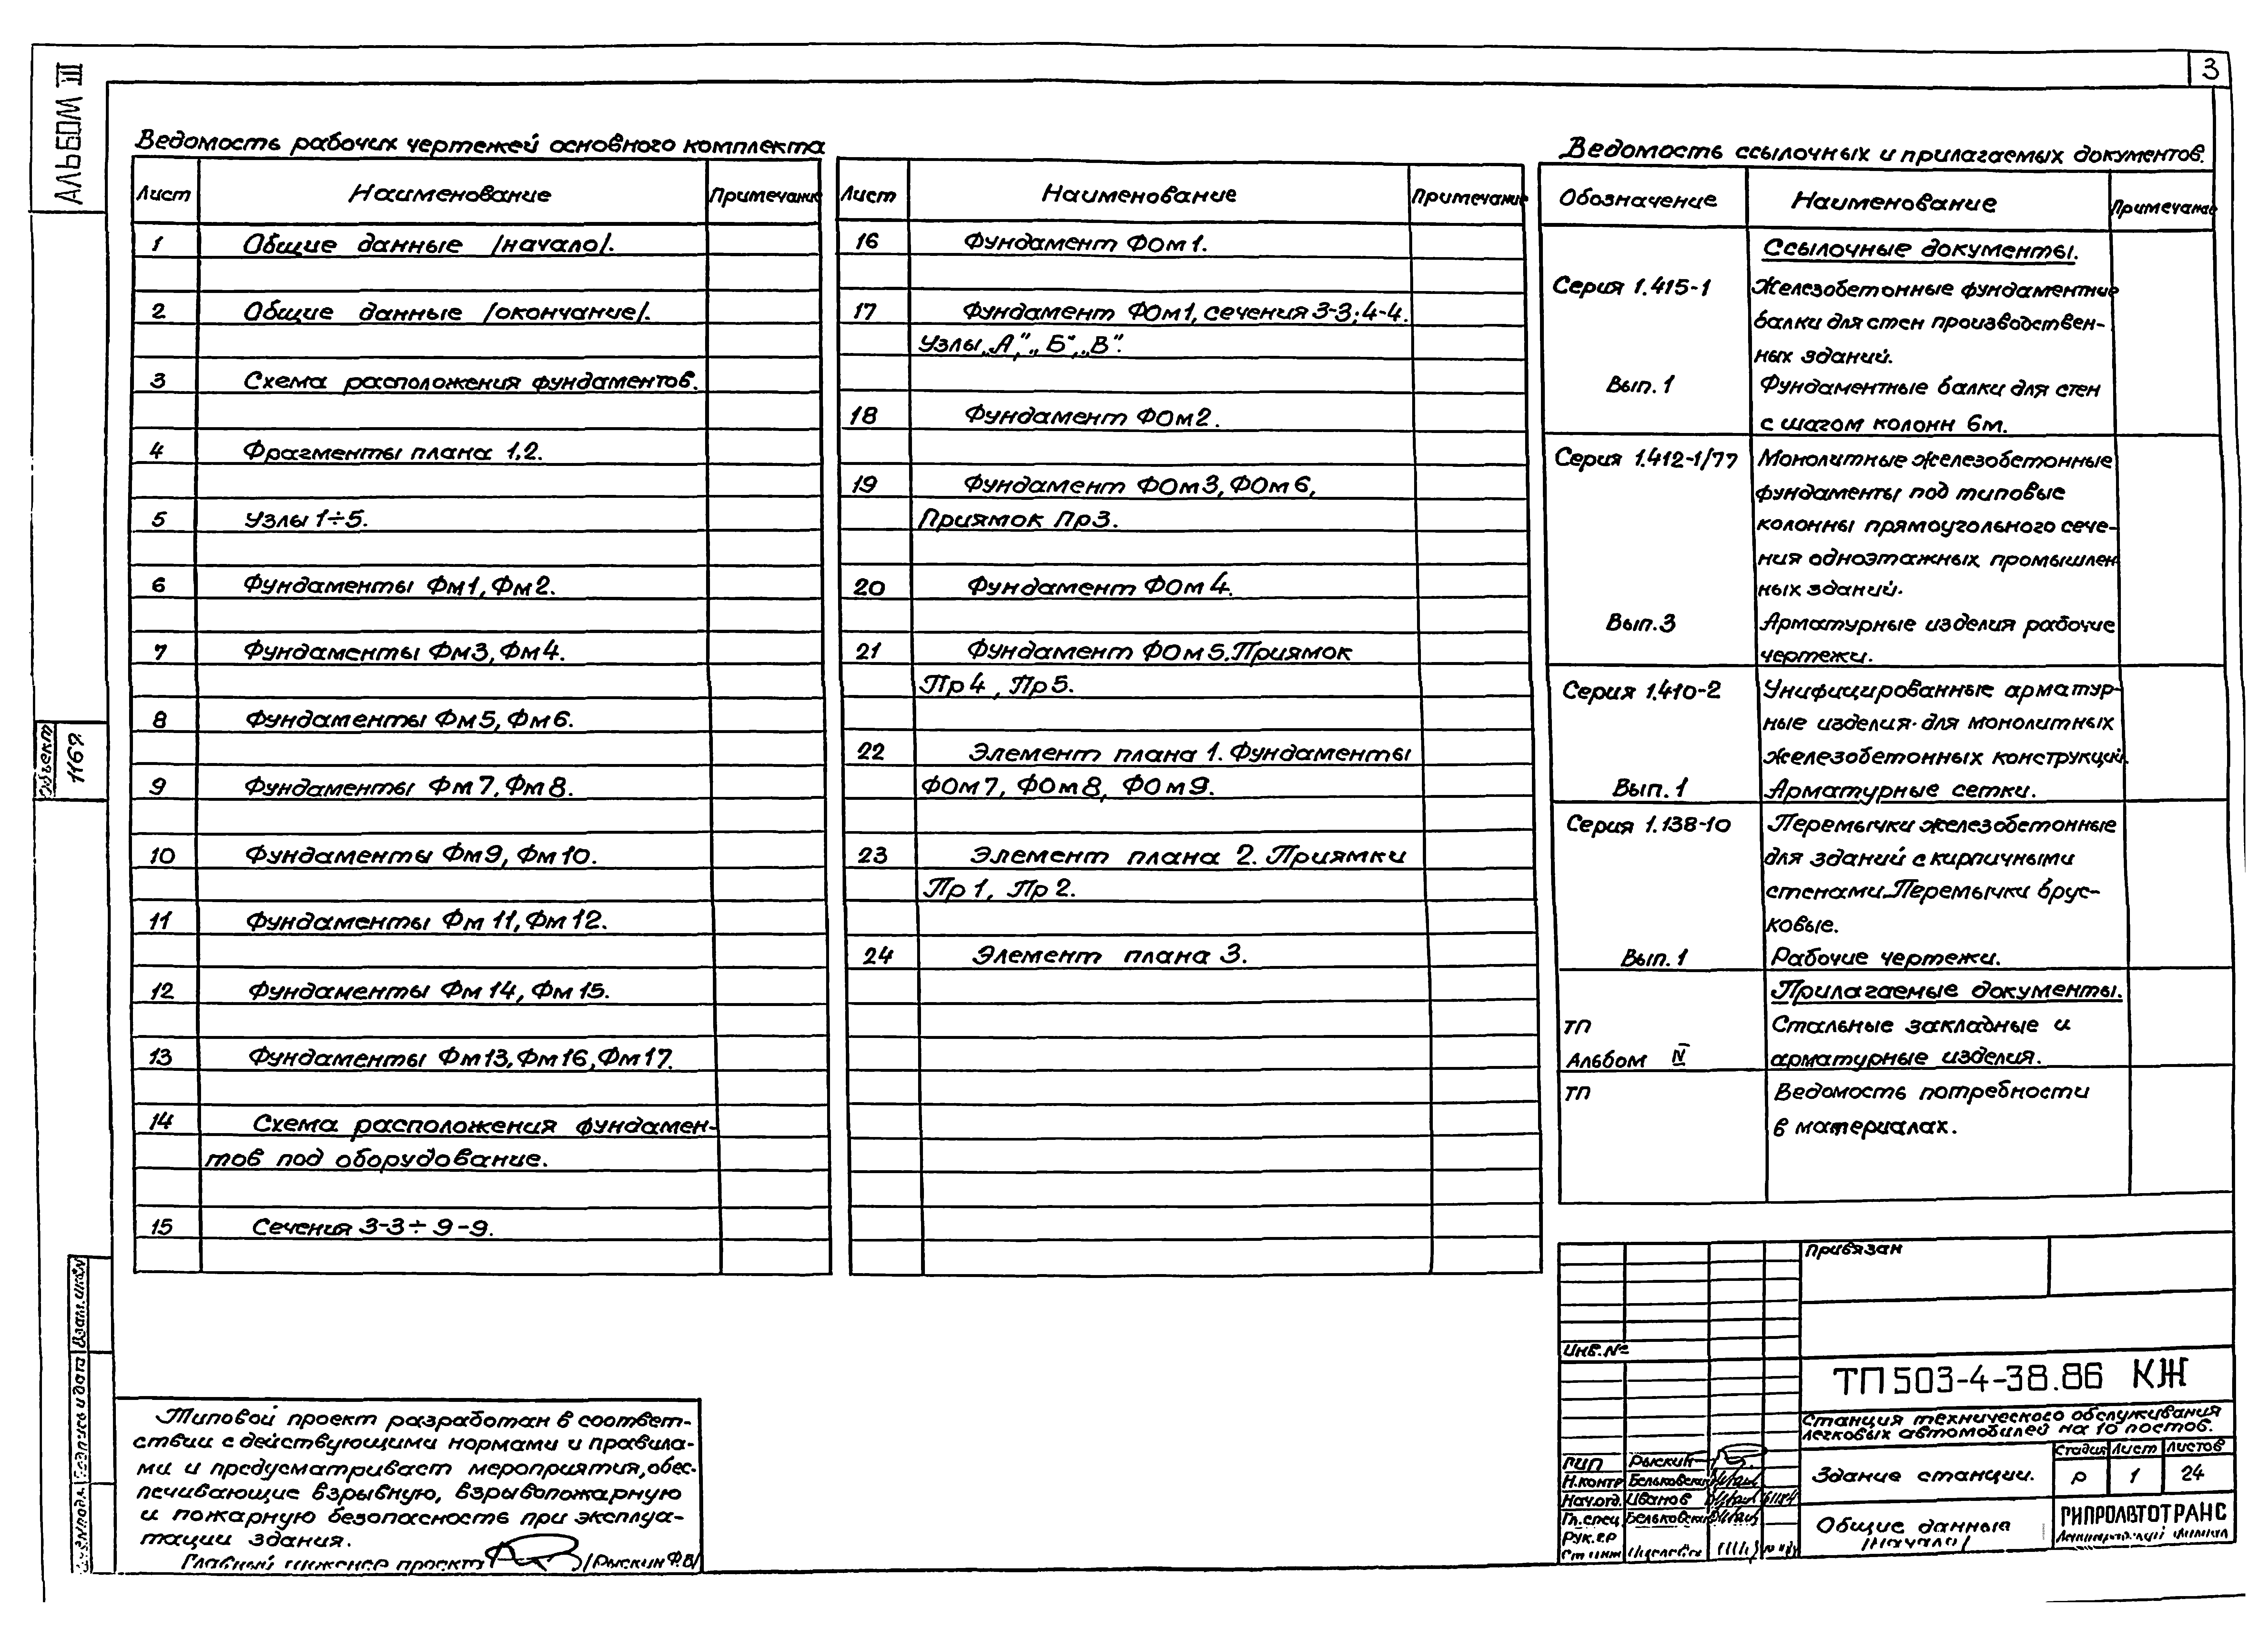 3
АЛЬБОМ III
Ведомость рабочих чертежей основного комплекта
Лист Наименование Примечание
1 Общие данные /начало/.
2 Общие данные /окончание/.
3 Схема расположения фундаментов.
4 Фрагменты плана 1,2.
5 Узлы 1÷5.
6 Фундаменты Фм1, Фм2.
7 Фундаменты Фм3, Фм4.
8 Фундаменты Фм5, Фм6.
9 Фундаменты Фм7, Фм8.
10 Фундаменты Фм9, Фм10.
11 Фундаменты Фм11, Фм12.
12 Фундаменты Фм14, Фм15.
13 Фундаменты Фм13, Фм16, Фм17.
14 Схема расположения фундамен-
тов под оборудование.
15 Сечения 3-3÷9-9.
Лист Наименование Примечание
16 Фундамент ФОм1.
17 Фундамент ФОм1, сечения 3-3; 4-4.
Узлы „А", „Б", „В".
18 Фундамент ФОм2.
19 Фундамент ФОм3, ФОм6,
Приямок Пр3.
20 Фундамент ФОм4.
21 Фундамент ФОм5. Приямок
Пр4, Пр5.
22 Элемент плана 1. Фундаменты
ФОм7, ФОм8, ФОм9.
23 Элемент плана 2. Приямки
Пр1, Пр2.
24 Элемент плана 3.
Ведомость ссылочных и прилагаемых документов.
Обозначение Наименование Примечание
Ссылочные документы.
Серия 1.415-1 Железобетонные фундаментные
балки для стен производствен-
ных зданий.
Вып. 1 Фундаментные балки для стен
с шагом колонн 6м.
Серия 1.412-1/77 Монолитные железобетонные
фундаменты под типовые
колонны прямоугольного сече-
ния одноэтажных промышлен
ных зданий.
Вып. 3 Арматурные изделия рабочие
чертежи.
Серия 1.410-2 Унифицированные арматур-
ные изделия для монолитных
железобетонных конструкций.
Вып. 1 Арматурные сетки.
Серия 1.138-10 Перемычки железобетонные
для зданий с кирпичными
стенами. Перемычки брус-
ковые.
Вып. 1 Рабочие чертежи.
Прилагаемые документы.
ТП Стальные закладные и
Альбом IV арматурные изделия.
ТП Ведомость потребности
в материалах.
Объект
1167
Взам.инв.№
Подпись и дата
Типовой проект разработан в соответ-
ствии с действующими нормами и правила-
ми и предусматривает мероприятия, обес-
печивающие взрывную, взрывопожарную
и пожарную безопасность при эксплуа-
тации здания.
Главный инженер проекта /Рыскин Ф.В/
Привязан
Инв.№
ТП 503-4-38.86 КЖ
Станция технического обслуживания
легковых автомобилей на 10 постов.
ГИП Рыскин
Н.контр Бельковский
Нач.отд. Иванов
Гл.спец Бельковский
Рук.гр
Ст инж
Здание станции.
Стадия Лист Листов
Р 1 24
Общие данные
/начало/
ГИПРОАВТОТРАНС
Ленинградский филиал